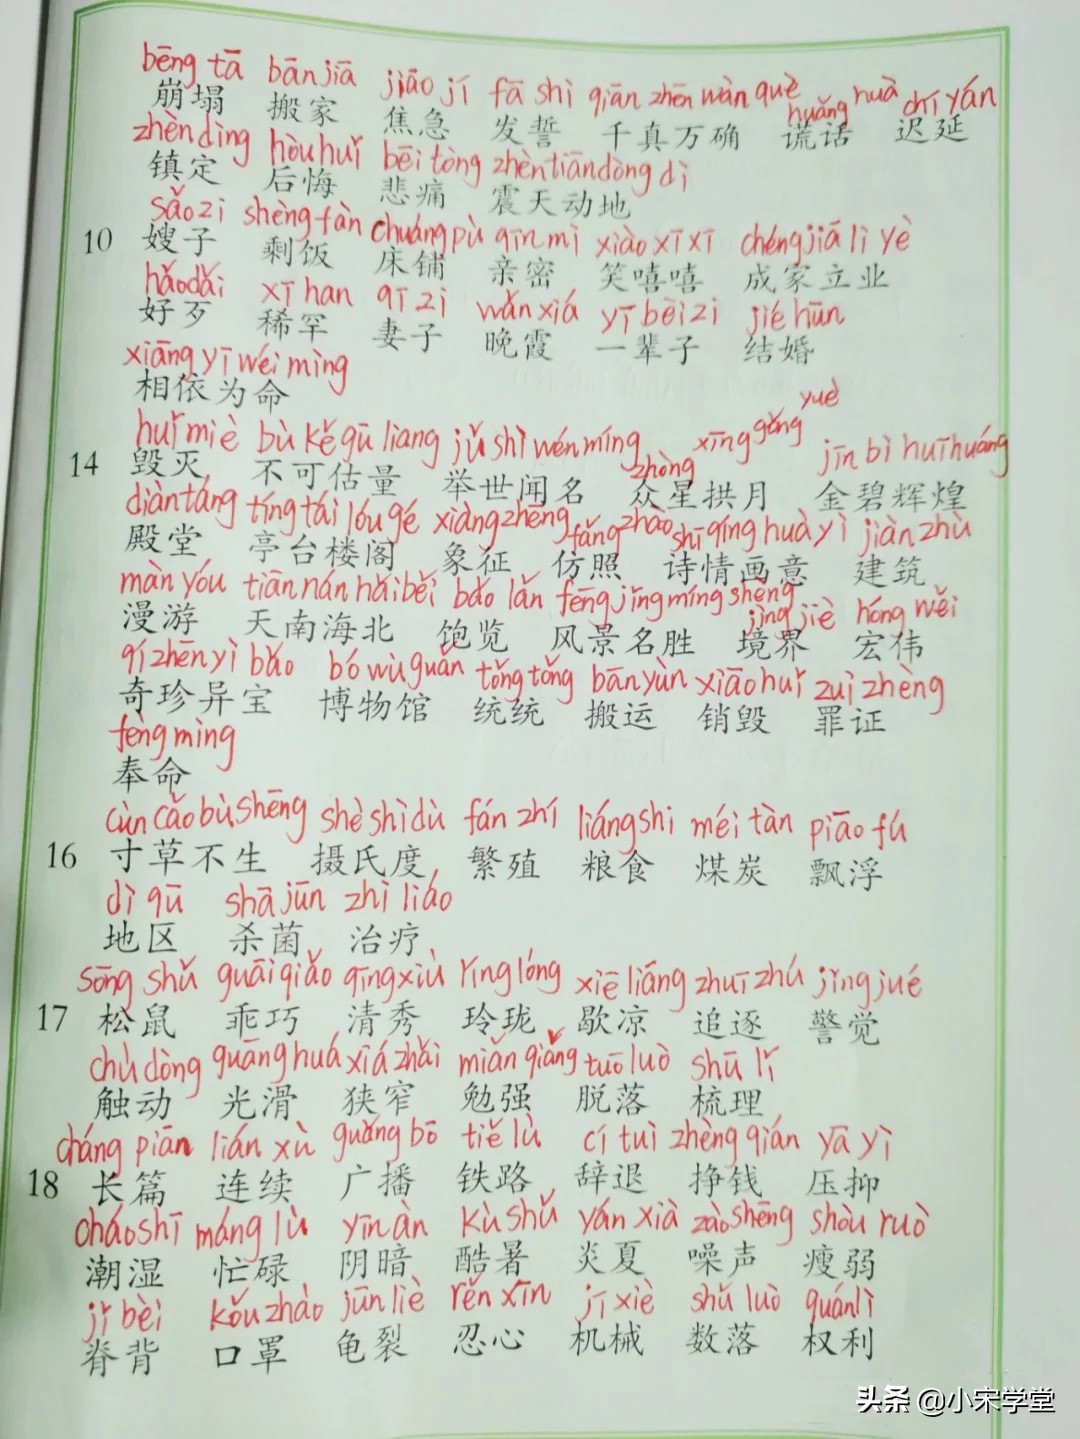 bēng tā bān jiā jiāo jí fā shì qiān zhēn wàn què huǎng huà chí yán
崩塌 搬家 焦急 发誓 千真万确 谎话 迟延
zhèn dìng hòu huǐ bēi tòng zhèn tiān dòng dì
镇定 后悔 悲痛 震天动地
sǎo zi shèng fàn chuáng pù qīn mì xiào xī xī chéng jiā lì yè
10 嫂子 剩饭 床铺 亲密 笑嘻嘻 成家立业
hǎo dǎi xī han qī zi wǎn xiá yī bèi zi jié hūn
好歹 稀罕 妻子 晚霞 一辈子 结婚
xiāng yī wéi mìng
相依为命
huǐ miè bù kě gū liang jǔ shì wén míng zhòng xīng gǒng yuè jīn bì huī huáng
14 毁灭 不可估量 举世闻名 众星拱月 金碧辉煌
diàn táng tíng tái lóu gé xiàng zhēng fǎng zhào shī qíng huà yì jiàn zhù
殿堂 亭台楼阁 象征 仿照 诗情画意 建筑
màn yóu tiān nán hǎi běi bǎo lǎn fēng jǐng míng shèng jìng jiè hóng wěi
漫游 天南海北 饱览 风景名胜 境界 宏伟
qí zhēn yì bǎo bó wù guǎn tǒng tǒng bān yùn xiāo huǐ zuì zhèng
奇珍异宝 博物馆 统统 搬运 销毁 罪证
fèng mìng
奉命
cùn cǎo bù shēng shè shì dù fán zhí liáng shi méi tàn piāo fú
16 寸草不生 摄氏度 繁殖 粮食 煤炭 飘浮
dì qū shā jūn zhì liáo
地区 杀菌 治疗
sōng shǔ guāi qiǎo qīng xiù líng lóng xiē liáng zhuī zhú jǐng jué
17 松鼠 乖巧 清秀 玲珑 歇凉 追逐 警觉
chù dòng guāng huá xiá zhǎi miǎn qiǎng tuō luò shū lǐ
触动 光滑 狭窄 勉强 脱落 梳理
cháng piān lián xù guǎng bō tiě lù cí tuì zhèng qián yā yì
18 长篇 连续 广播 铁路 辞退 挣钱 压抑
cháo shī máng lù yīn àn kù shǔ yán xià zào shēng shòu ruò
潮湿 忙碌 阴暗 酷暑 炎夏 噪声 瘦弱
jǐ bèi kǒu zhào jūn liè rěn xīn jī xiè shǔ luò quán lì
脊背 口罩 龟裂 忍心 机械 数落 权利
头条 @小宋学堂